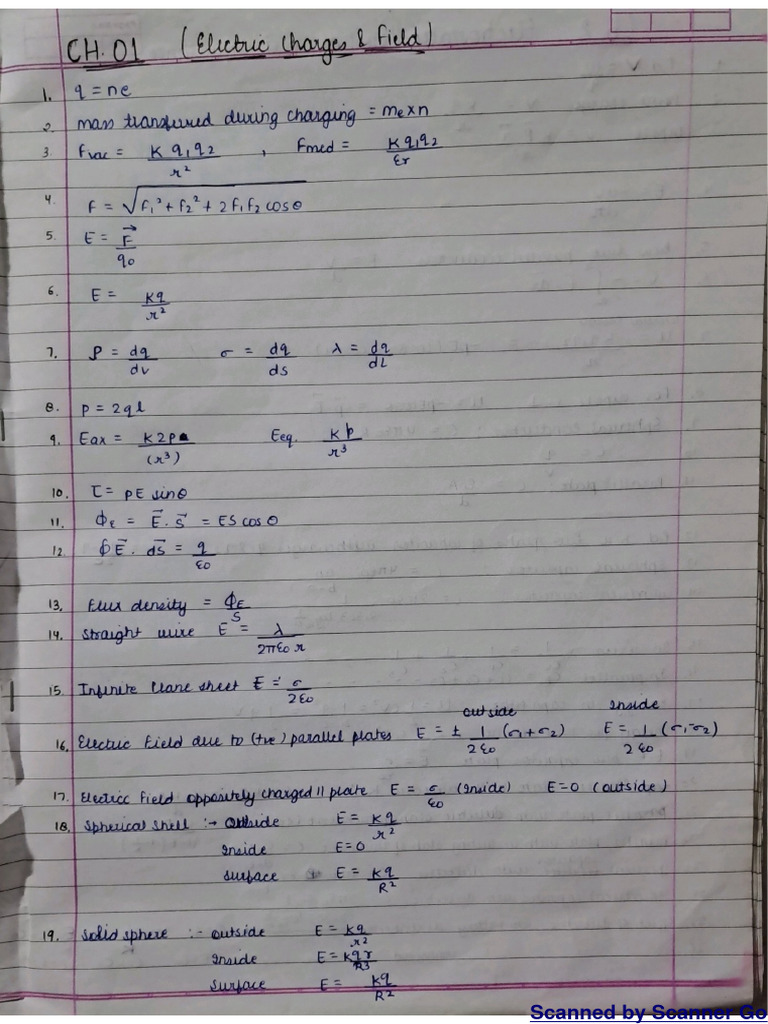 CH.01 (Electric Charges & Field)
1. q = ne
2. mass transferred during charging = me×n
3. Fvac = K q₁q₂ / r² , Fmed = K q₁q₂ / εr
4. F = √F₁² + F₂² + 2F₁F₂ cosθ
5. E = F⃗ / q₀
6. E = Kq / r²
7. ρ = dq/dv σ = dq/ds λ = dq/dL
8. P = 2ql
9. Eax = K2P / (r³) Eeq. KP / r³
10. τ = PE sinθ
11. ϕE = E⃗ . S⃗ = ES cosθ
12. ∮E⃗ . dS⃗ = q / ε0
13, Flux density = ϕE / S
14. Straight wire E = λ / 2πε0 r
15. Infinite Plane sheet E = σ / 2ε0
outside Inside
16, Electric Field due to (+ve) parallel plates E = ± 1/2ε0 (σ₁+σ₂) E = 1/2ε0 (σ₁-σ₂)
17. Electric Field oppositely charged 11 plate E = σ/ε0 (Inside) E=0 (outside)
18. Spherical shell :→ outside E = Kq / r²
Inside E=0
surface E = Kq / R²
19. Solid sphere :- outside E = Kq / r²
Inside E = Kqr / R³
Surface E = Kq / R²
Scanned by Scanner Go